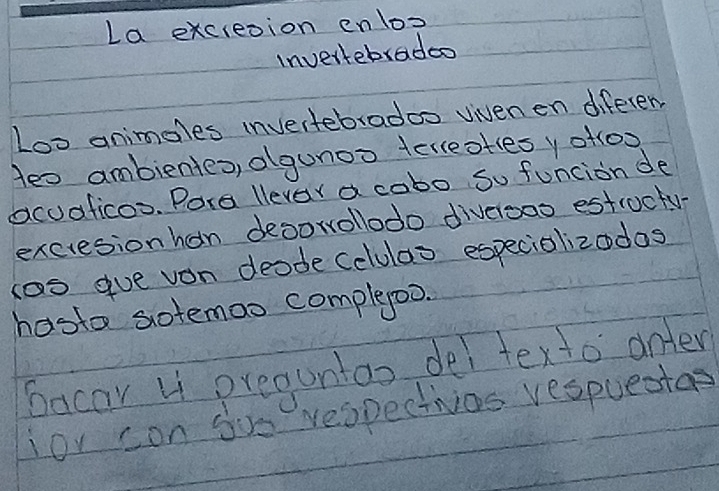 La excresion en los
invertebrados
Los animales invertebrados viven en diferen
tes ambientes, algunos terrestres y otros
acuaticos. Para llevar a cabo su función de
excresion han desarrollado diversas estructu-
ras que van desde celulas especializadas
hasta sistemas complejos.
Sacar 4 preguntas del texto anter
ior con sus respectivas respuestas